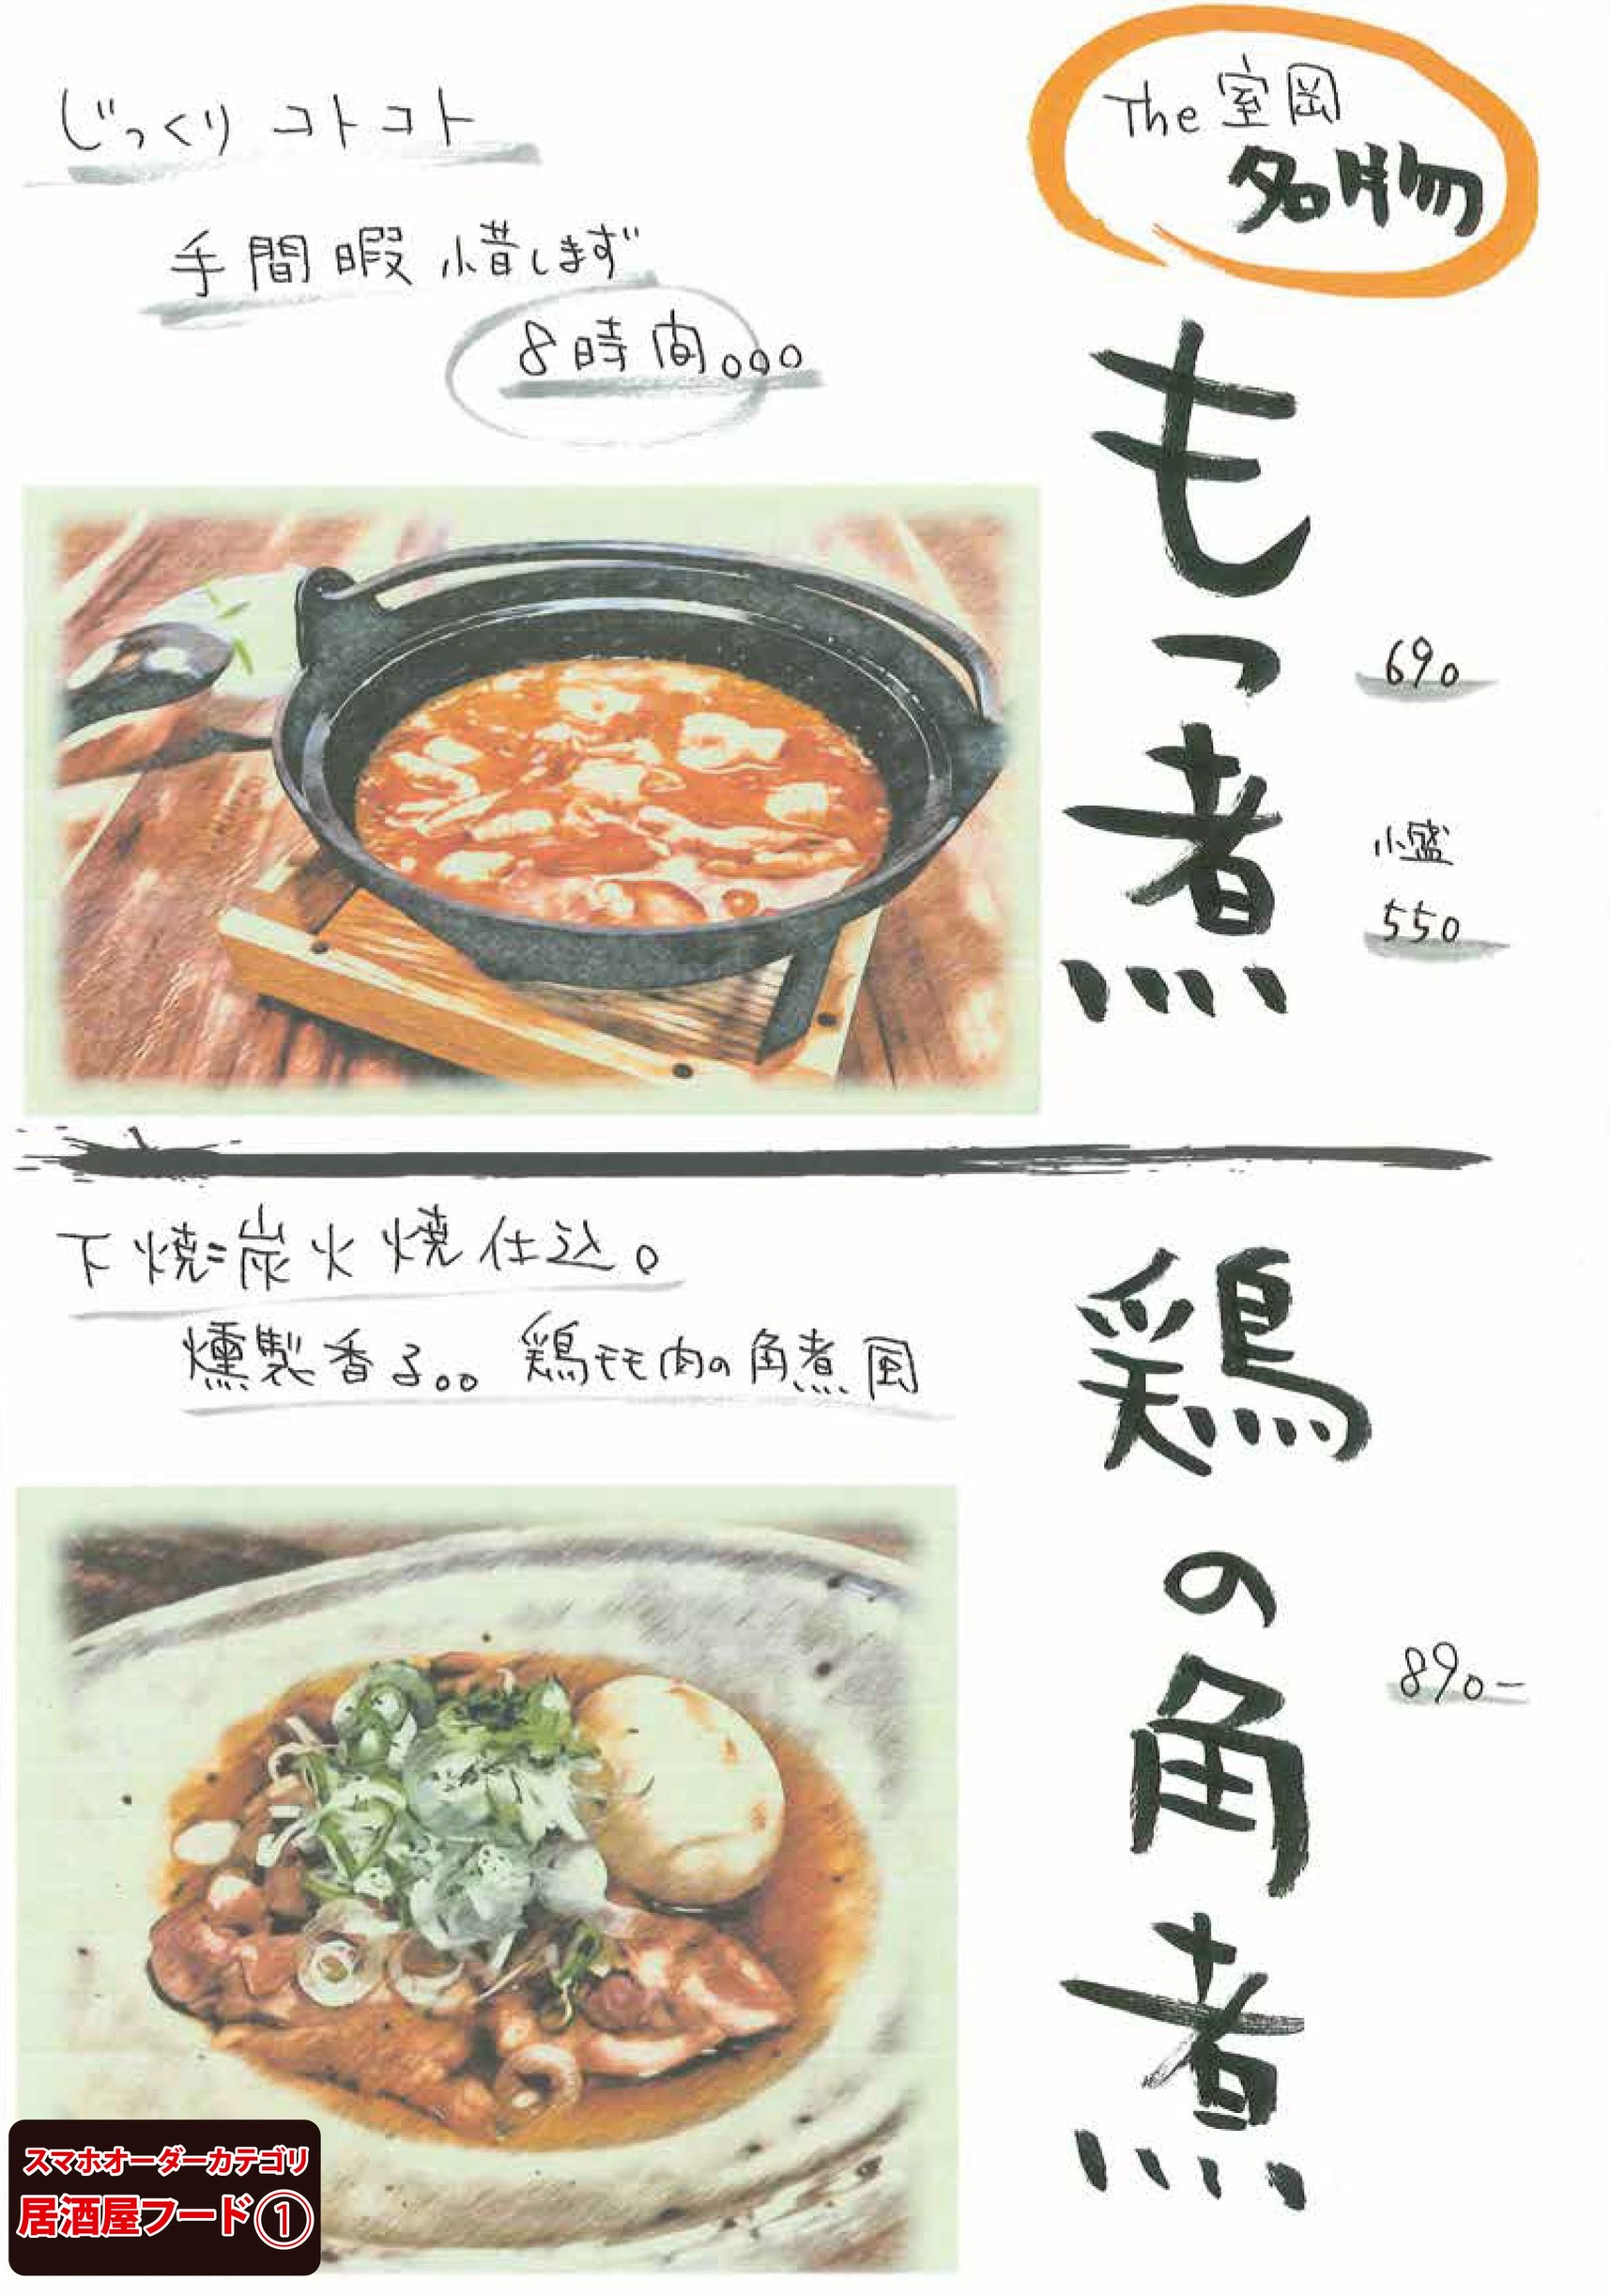 The 室岡
名物
じっくり コトコト
手間暇 惜しまず
8時間。。。
もつ煮
690
小盛
550
下焼=炭火焼仕込。
燻製香る。。 鶏モモ肉の角煮風
鶏の角煮
890-
スマホオーダーカテゴリ
居酒屋フード①